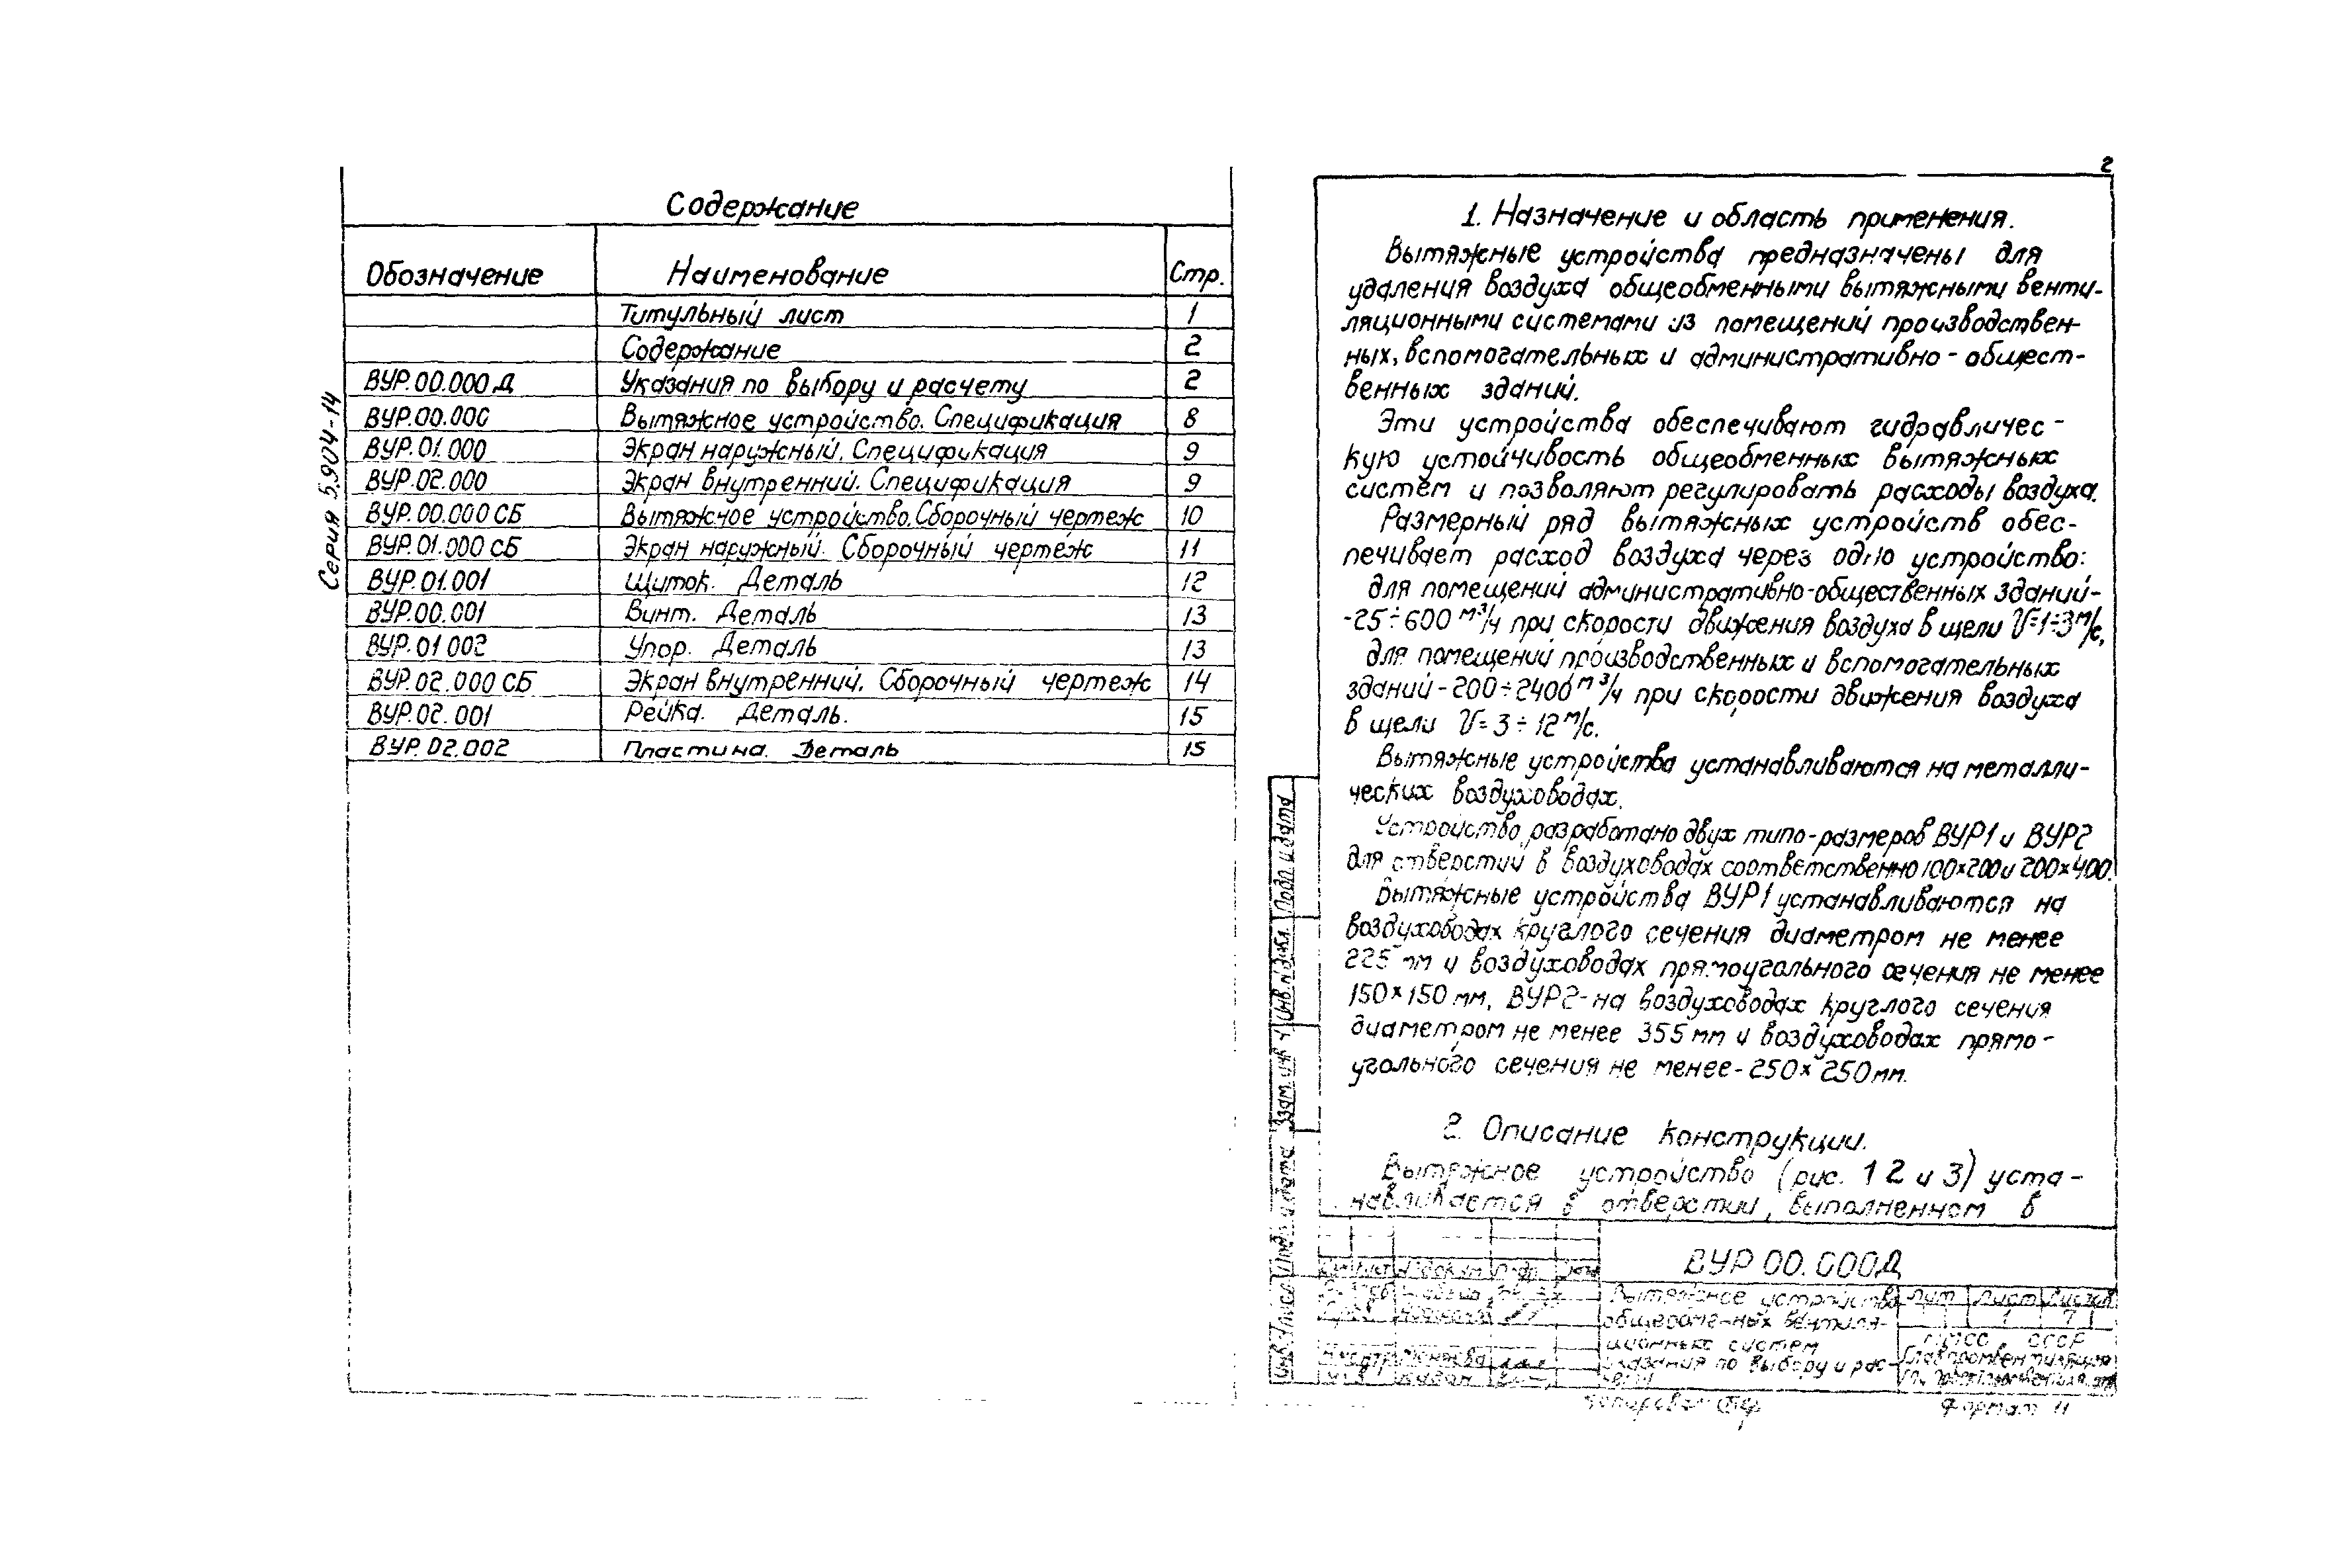 Серия 5.904-14
Содержание
Обозначение Наименование Стр.
Титульный лист 1
Содержание 2
ВУР.00.000 Д Указания по выбору и расчету 2
ВУР.00.000 Вытяжное устройство. Спецификация 8
ВУР.01.000 Экран наружный. Спецификация 9
ВУР.02.000 Экран внутренний. Спецификация 9
ВУР.00.000 СБ Вытяжное устройство. Сборочный чертеж 10
ВУР.01.000 СБ Экран наружный. Сборочный чертеж 11
ВУР.01.001 Щиток. Деталь 12
ВУР.00.001 Винт. Деталь 13
ВУР.01 002 Упор. Деталь 13
ВУР.02.000 СБ Экран внутренний. Сборочный чертеж 14
ВУР.02.001 Рейка. Деталь. 15
ВУР.02.002 Пластина. Деталь 15
2
1. Назначение и область применения.
Вытяжные устройства предназначены для
удаления воздуха общеобменными вытяжными венти-
ляционными системами из помещений производствен-
ных, вспомогательных и административно-общест-
венных зданий.
Эти устройства обеспечивают гидравличес-
кую устойчивость общеобменных вытяжных
систем и позволяют регулировать расходы воздуха.
Размерный ряд вытяжных устройств обес-
печивает расход воздуха через одно устройство:
для помещений административно-общественных зданий-
-25÷600 м³/ч при скорости движения воздуха в щели V=1÷3 м/с,
для помещений производственных и вспомогательных
зданий-200÷2400 м³/ч при скорости движения воздуха
в щели V=3÷12 м/с.
Вытяжные устройства устанавливаются на металли-
ческих воздуховодах.
Устройство разработано двух типо-размеров ВУР1 и ВУР2
для отверстий в воздуховодах соответственно 100×200 и 200×400.
Вытяжные устройства ВУР1 устанавливаются на
воздуховодах круглого сечения диаметром не менее
225 мм и воздуховодах прямоугольного сечения не менее
150×150 мм, ВУР2-на воздуховодах круглого сечения
диаметром не менее 355 мм и воздуховодах прямо-
угольного сечения не менее-250×250 мм.
2. Описание конструкции.
Вытяжное устройство (рис. 1 2 и 3) уста-
навливается в отверстии, выполненном в
Подп. и дата
Инв.№дубл.
Взам. инв.
Подп. и дата
Инв.№подл
ВУР 00.000Д
Вытяжное устройство
общеобменных вентиля-
ционных систем
Указания по выбору и рас-
чету
Лит Лист Листов
1 7
СССР
Главпромвентиляция
Копировал
Формат 11